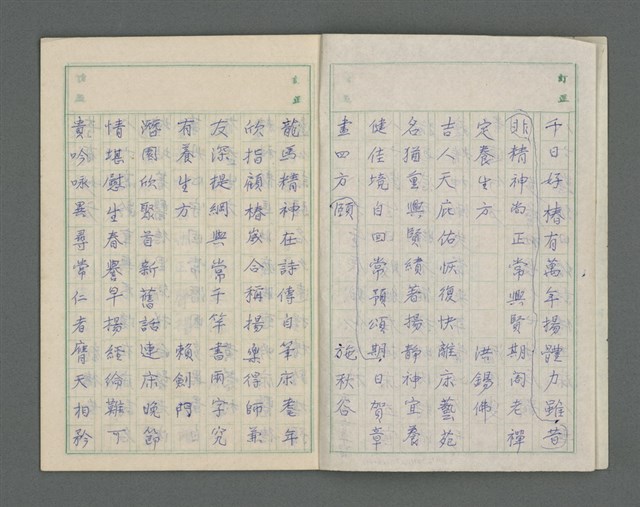 訂正
千日好椿有萬年揚體力雖昔
非精神尚正常興賢期閣老禪
定養生方　洪錫佛
吉人天庇佑恢復快離床藝苑
名猶重興賢績著揚靜神宜養
健佳境自回常預頌期日賀章
畫四方頌　施秋谷
訂正
龍馬精神在詩傳白筆床耋年
欣指顧椿歲合稱揚樂得師兼
友深提綱與常千竿書兩字究
有養生方　賴劍門
浮園欣聚首新舊話連床晚節
情堪慰生春譽早揚經倫難可
貴吟咏異尋常仁者膺天相矜